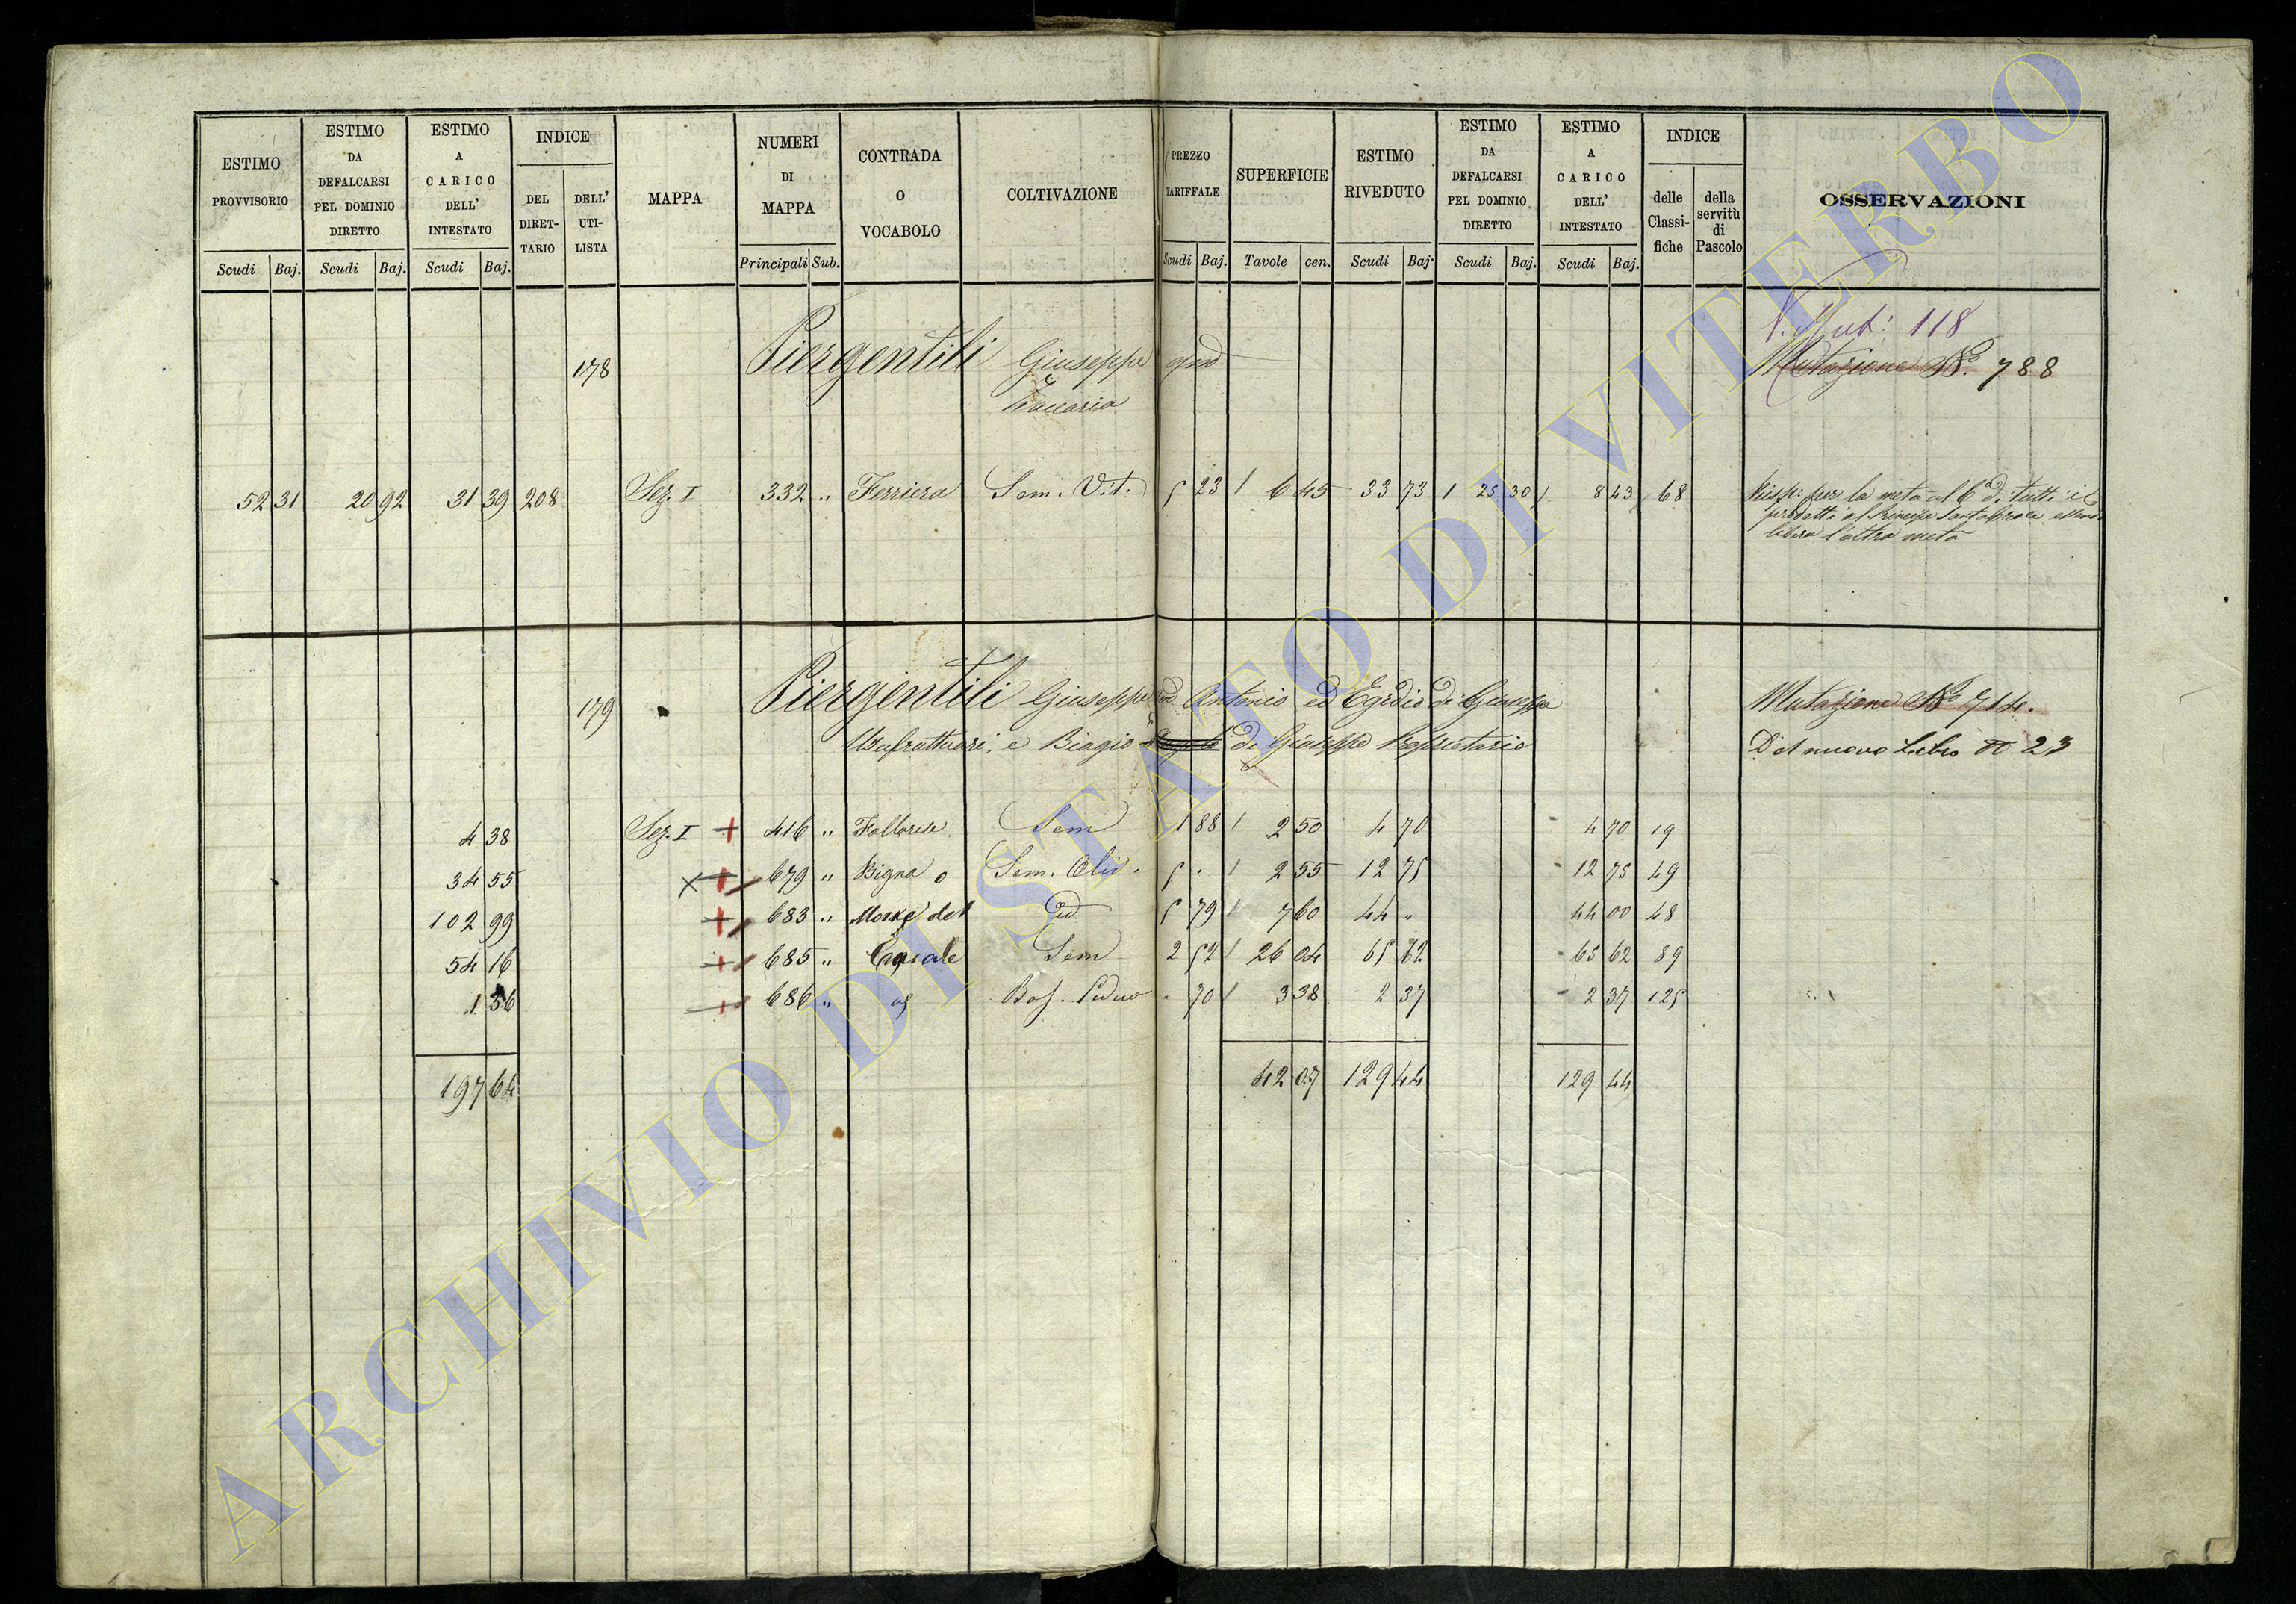 ESTIMO PROVVISORIO
Scudi Baj.
ESTIMO DA DEFALCARSI PEL DOMINIO DIRETTO
Scudi Baj.
ESTIMO A CARICO DELL' INTESTATO
Scudi Baj.
INDICE
DEL DIRET-TARIO
DELL' UTI-LISTA
MAPPA
NUMERI DI MAPPA
Principali Sub.
CONTRADA O VOCABOLO
COLTIVAZIONE
PREZZO TARIFFALE
Scudi Baj.
SUPERFICIE
Tavole cen.
ESTIMO RIVEDUTO
Scudi Baj.
ESTIMO DA DEFALCARSI PEL DOMINIO DIRETTO
Scudi Baj.
ESTIMO A CARICO DELL' INTESTATO
Scudi Baj.
INDICE
delle Classi-fiche
della servitù di Pascolo
OSSERVAZIONI
V. Mut: 118
178 Piergentili Giuseppe qm Mutazione No. 788
Zaccaria
52 31 20 92 31 39 208 Sez. I 332 " Ferriera Sem. Vit. 5 23 6 45 33 73 25 30 8 43 68
Risp: per la metà al 6º di tutti i
prodotti al Principe Santacroce
libera l'altra metà
179 Piergentili Giuseppe Antonio ed Egidio di Giuseppe Mutazione No 714.
Usufruttuari, e Biagio di Giuseppe Proprietario Del nuovo Libro No 23
4 38 Sez. I + 416 " Sem 1 88 2 50 4 70 4 70 19
34 55 x + 679 " Bigna o Sem. Oliv. 5 " 2 55 12 75 12 75 49
102 99 + 683 " del Id 5 79 7 60 44 " 44 00 48
54 16 + 685 " Casale Sem 2 52 26 04 65 62 65 62 89
1 56 + 686 " Bos. Ceduo " 70 3 38 2 37 2 37 125
197 64 42 07 129 44 129 44
ARCHIVIO DI STATO DI VITERBO